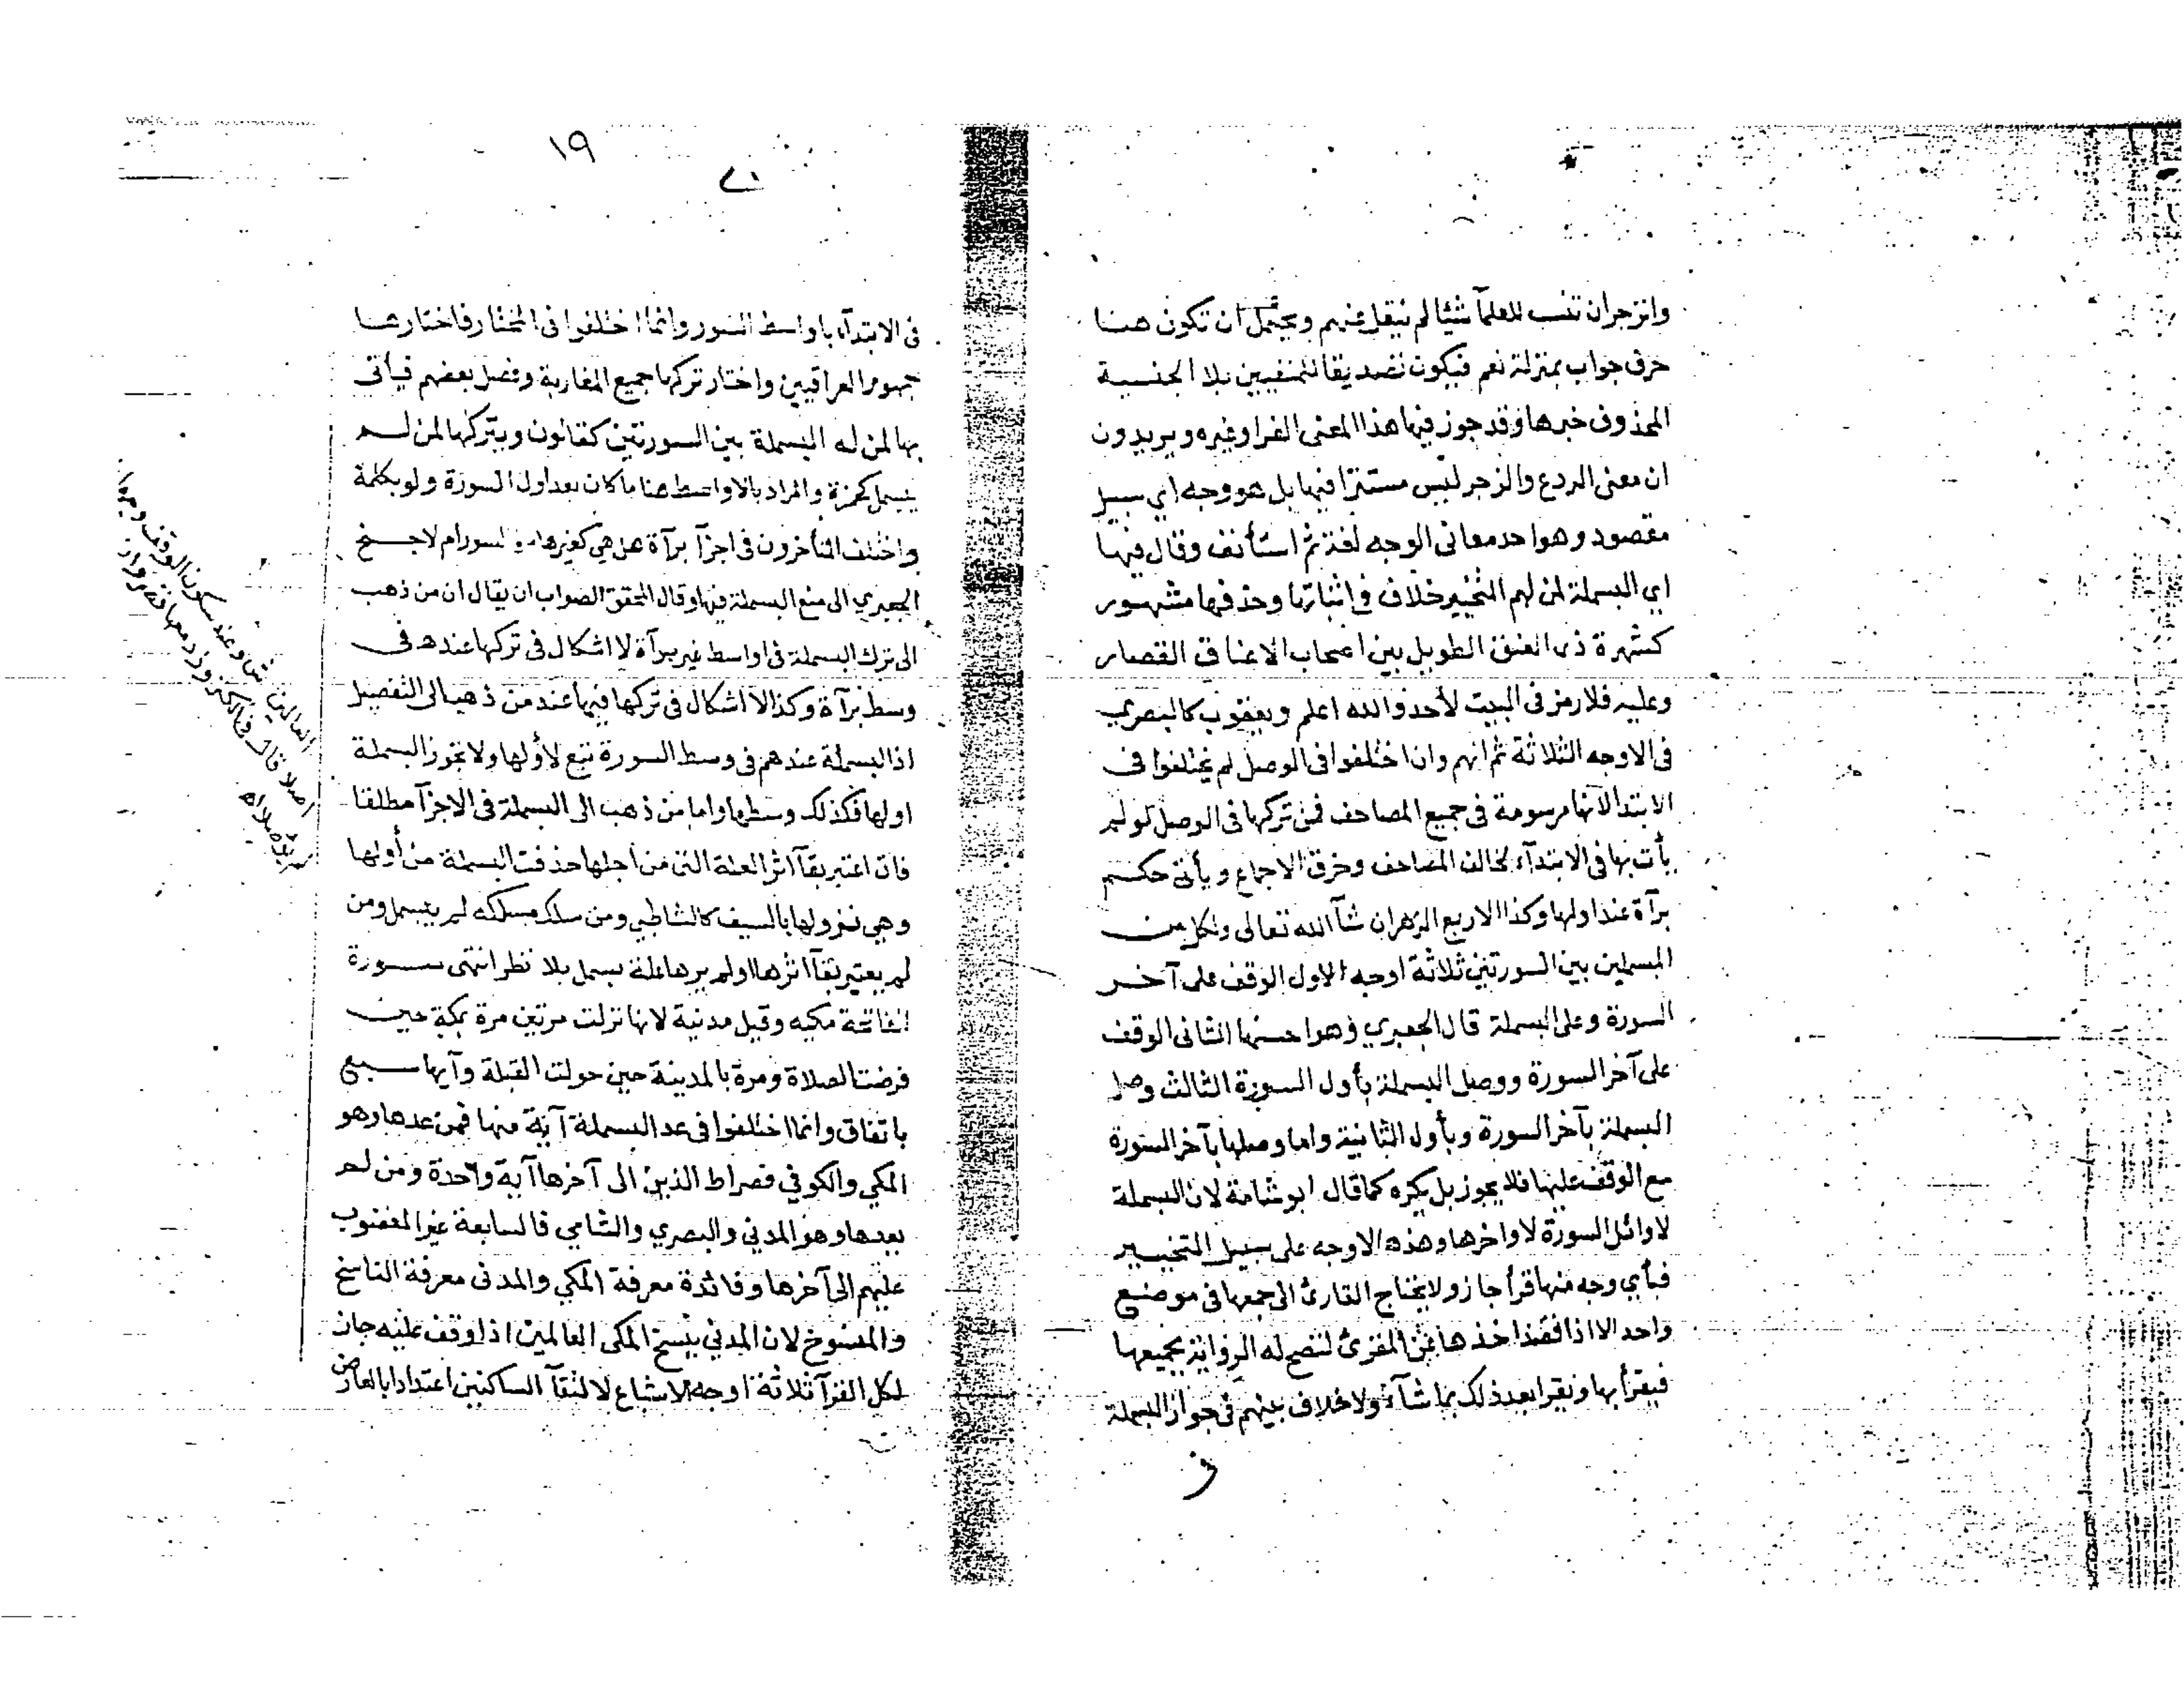 وانزجر ان تنسب للعلمآ شيئا لم ينقل عنهم ويحتمل ان تكون هنا
حرف جواب بمنزلة نعم فيكون تصديقا للمنفيين بلا الجنسية
المحذوف خبرها وقد جوز فيها هذا المعنى الفرا وغيره ويريدون
ان معنى الردع والزجر ليس مستترا فيها بل هو وجه اي سبيل
مقصود وهو احد معانى الوجه لغة ثم استأنف وقال فيها
اي البسملة لمن لهم التخيير خلاف في اثباتها وحذفها مشهور
كشهرة ذى العنق الطويل بين اصحاب الاعناق القصار
وعليه فلا رمز فى البيت لأحد والله اعلم ويعقوب كالبصري
فى الاوجه الثلاثة ثم انهم وان اختلفوا فى الوصل لم يختلفوا فى
الابتدا لانها مرسومة فى جميع المصاحف فمن تركها فى الوصل لو لم
يأت بها فى الابتدآء لخالف المصاحف وخرق الاجماع ويأتى حكم
برآة عند اولها وكذا الاربع الزهر ان شآ الله تعالى ولكل من
المبسملين بين السورتين ثلاثة اوجه الاول الوقف على آخر
السورة وعلى البسملة قال الجعبري وهو احسنها الثانى الوقف
على آخر السورة ووصل البسملة بأول السورة الثالث وصل
البسملة بآخر السورة وبأول الثانية واما وصلها بآخر السورة
مع الوقف عليها فلا يجوز بل يكره كما قال ابو شامة لان البسملة
لاوائل السورة لا واخرها وهذه الاوجه على سبيل التخيير
فبأي وجه منها قرأ جاز ولا يحتاج القارئ الى جمعها فى موضع
واحد الا اذا قصد اخذها عن المقرئ لتصح له الرواية بجميعها
فيقرأ بها ويقرا بعد ذلك بما شآء ولا خلاف بينهم فى جواز البسملة
فى
١٩
٢٠
فى الابتدآء باواسط السور وانما اختلفوا فى المختار فاختارها
جمهور العراقيين واختار تركها جميع المغاربة وفصل بعضهم فيأتى
بها لمن له البسملة بين السورتين كقالون ويتركها لمن لم
يبسمل كحمزة والمراد بالاواسط هنا ما كان بعد اول السورة ولو بكلمة
واختلف المتأخرون فى اجزآ برآة هل هي كغيرها من السور ام لا جنح
الجعبري الى منع البسملة فيها وقال المحقق الصواب ان يقال ان من ذهب
الى ترك البسملة فى اواسط غير برآة لا اشكال فى تركها عنده فى
وسط برآة وكذا لا اشكال فى تركها فيها عند من ذهب الى التفصيل
اذ البسملة عندهم فى وسط السورة تبع لأولها ولا تجوز البسملة
اولها فكذلك وسطها واما من ذهب الى البسملة فى الاجزآ مطلقا
فان اعتبر بقآ اثر العلة التى من اجلها حذفت البسملة من أولها
وهي نزولها بالسيف كالشاطبي ومن سلك مسلكه لم يبسمل ومن
لم يعتبر بقآ اثرها او لم يرها علة بسمل بلا نظر انتهى سورة
الفاتحة مكيه وقيل مدنية لانها نزلت مرتين مرة بمكة حين
فرضت الصلاة ومرة بالمدينة حين حولت القبلة وآيها سبع
باتفاق وانما اختلفوا فى عد البسملة آية منها فمن عدها وهو
المكي والكوفي فصراط الذين الى آخرها آية واحدة ومن لم
يعدها وهو المدني والبصري والشامي فالسابعة غير المغضوب
عليهم الى آخرها وفائدة معرفة المكي والمدنى معرفة الناسخ
والمنسوخ لان المدني ينسخ المكى العالمين اذا وقف عليه جاز
لكل القرآ ثلاثة اوجه الاشباع لالتقآ الساكنين اعتدادا بالعارض
العالمين وعند سكون الوقف وجهان
اصلا قال فى الكنز